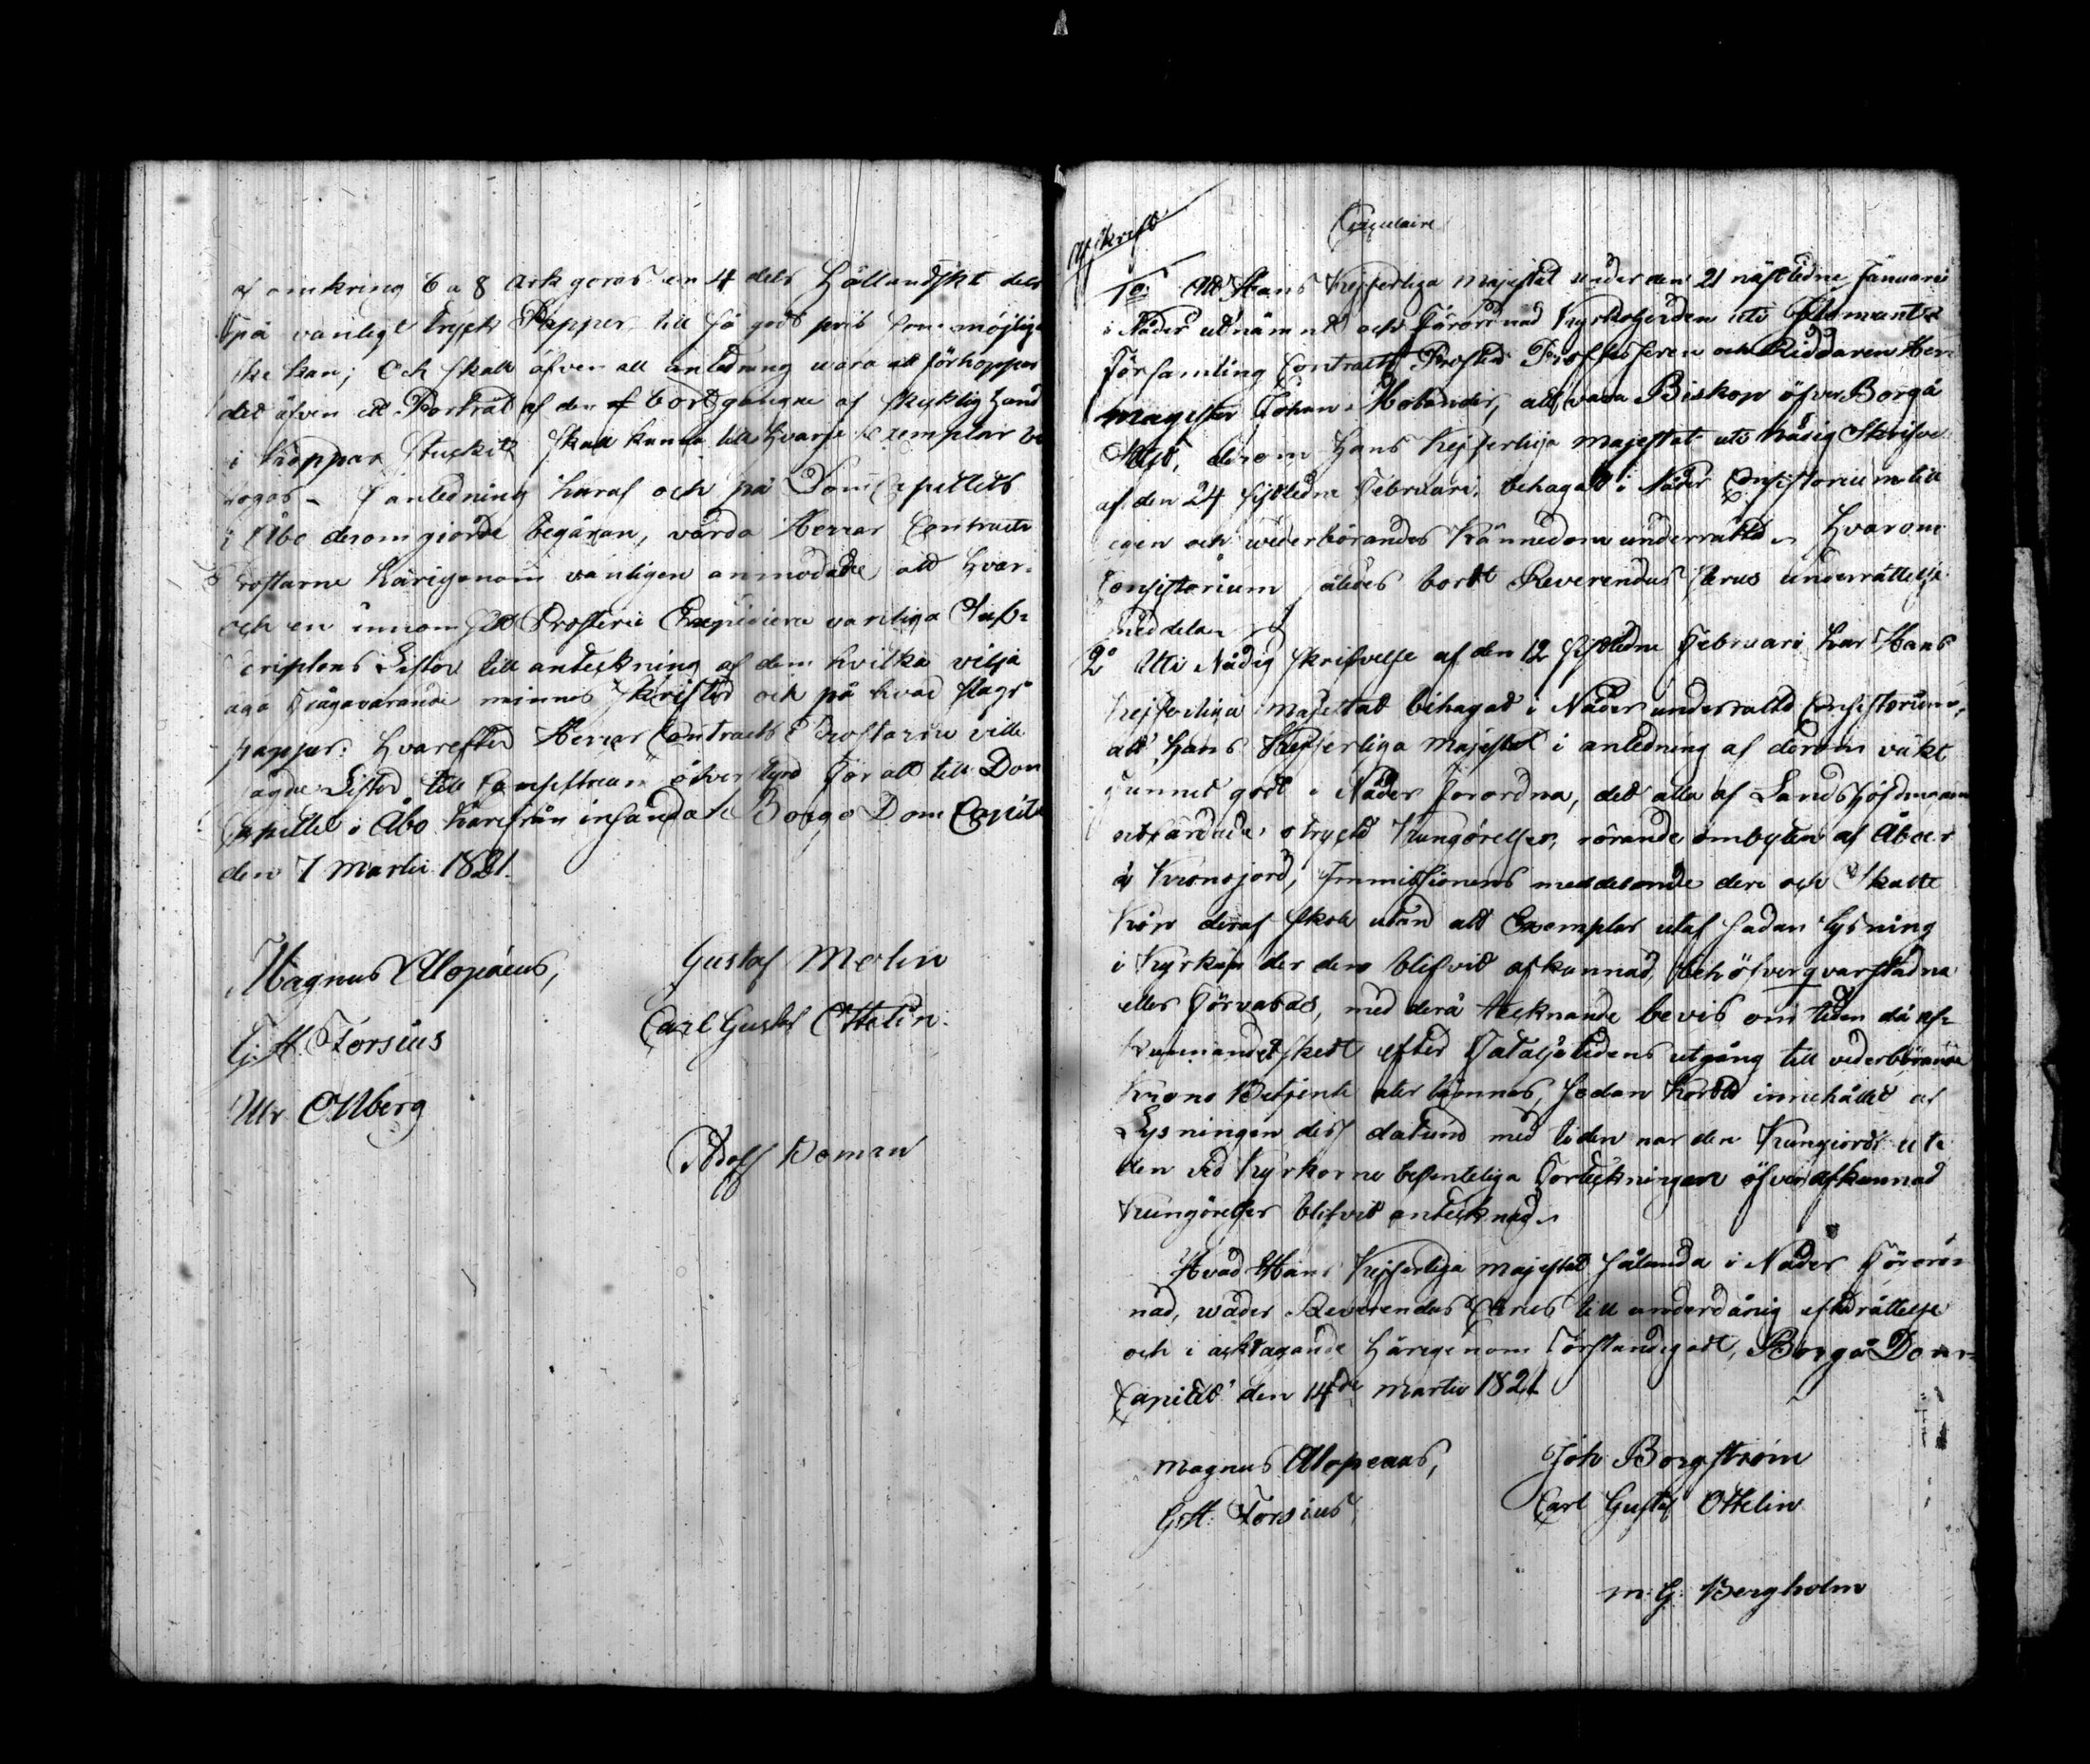 af omkring 6 a 8 Ark göras in 4 dels Hållandskt dels
på vanligt Tryck Papper till så godt pris som möjlig
ske kan; Och skall äfven all anledning wara att förhoppas
det äfven ett Portrat af den bortgångne af skicklig hand
i koppar stuckit skall kunna till hvarje Exemplar bi
fogas - I anledning häraf och på Dom Capitlets
i Åbo derom giorde begäran, varda Herrar Contracts
Prostarne härigenom vänligen anmodade att hvar
och en innom sitt Prosteri Expidiera vanliga Sub-
scriptions Listor till anteckning af dem hvilka vilja
äga ifrågavarande minnes skrifter och på hvad slags
papper: hvarefter Herrar Contracts Prostarne ville
sagde Listor till Consistorium öfver styra för att till Dom
Capitlet i Åbo härifrån insändas Borgå Dom Capitel
den 7 Martii 1821.
Magnus Alopæus,
Gustaf Molin
G: H. Forsius
Carl Gustaf Ottelin.
Mr Ollberg
Adolf Boman
Afskrift
Circulaire
1o Att Hans Kejserliga Majestät under den 21 nästledne Januarii
i Nåder utnämnt och Förordnad Kyrkoherden uti Ilomants
Församling Contracts Prosten Professoren och Riddaren Herr
Magister Johan Molander, att vara Biskop öfver Borgå
Stift, derom Hans Kejserliga Majestät uti Nådig Skrifvelse
af den 24 sistledne Februari, behagat i Nåder Consistorium till
egen och wederbörandes Kännedom underrätta, Hvarom
Consistorium således bordt Reverendus Clerus underrättelse
meddela
2o Uti Nådig skrifvelse af den 12 sistledne Februari har Hans
Kejserliga Majestät behagat i Nåder underrätta Consistorium,
att Hans Kejserliga Majestet i anledning af derom väkt
funnet godt i Nåder förordna, det alla af Landshöfdingarne
utfärdade, tryckta Kungörelser, rörande ombyten af Åboer
å Kronojord, Immissioners meddelande deri och Skatte
Köp deraf skola utan att Exemplar utaf sadan lysning
i Kyrkan der den blifvit afkunnad, behöfver qvarstadna
eller Förvaras, med derå tecknande bevis om tiden då af-
kunnandet skett efter Fataljetidens utgång till vederbörande
Krono Betjente åter lämnas, sedan kordt innehållet af
Lysningen des datum med tiden nar den Kungiordt uti
den vid Kyrkorne befinteliga Forteckningen öfver afkunnad
Kungörelser blifvit antecknad
Hvad Hans Kejserliga Majestät sålunda i Nåder Förord-
nad, wader Reverendus Clerus till underdånig efterrättelse
och i akttagande härigenom Förständigadt, Borgå Dom-
Capitel den 14de Martii 1821
Magnus Alopæus,
Joh Borgström
G: H: Forsius
Carl Gustaf Ottelin
M: G: Bergholm